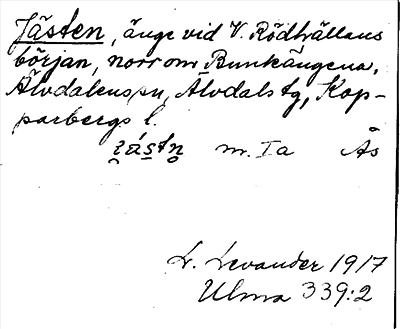 Jästen, änge vid V. Rödhällans
början, norr om Bunkängena,
Älvdalens sn, Älvdals tg, Kop-
parbergs l.
m. Ia Ås
L. Levander 1917
Ulma 339:2